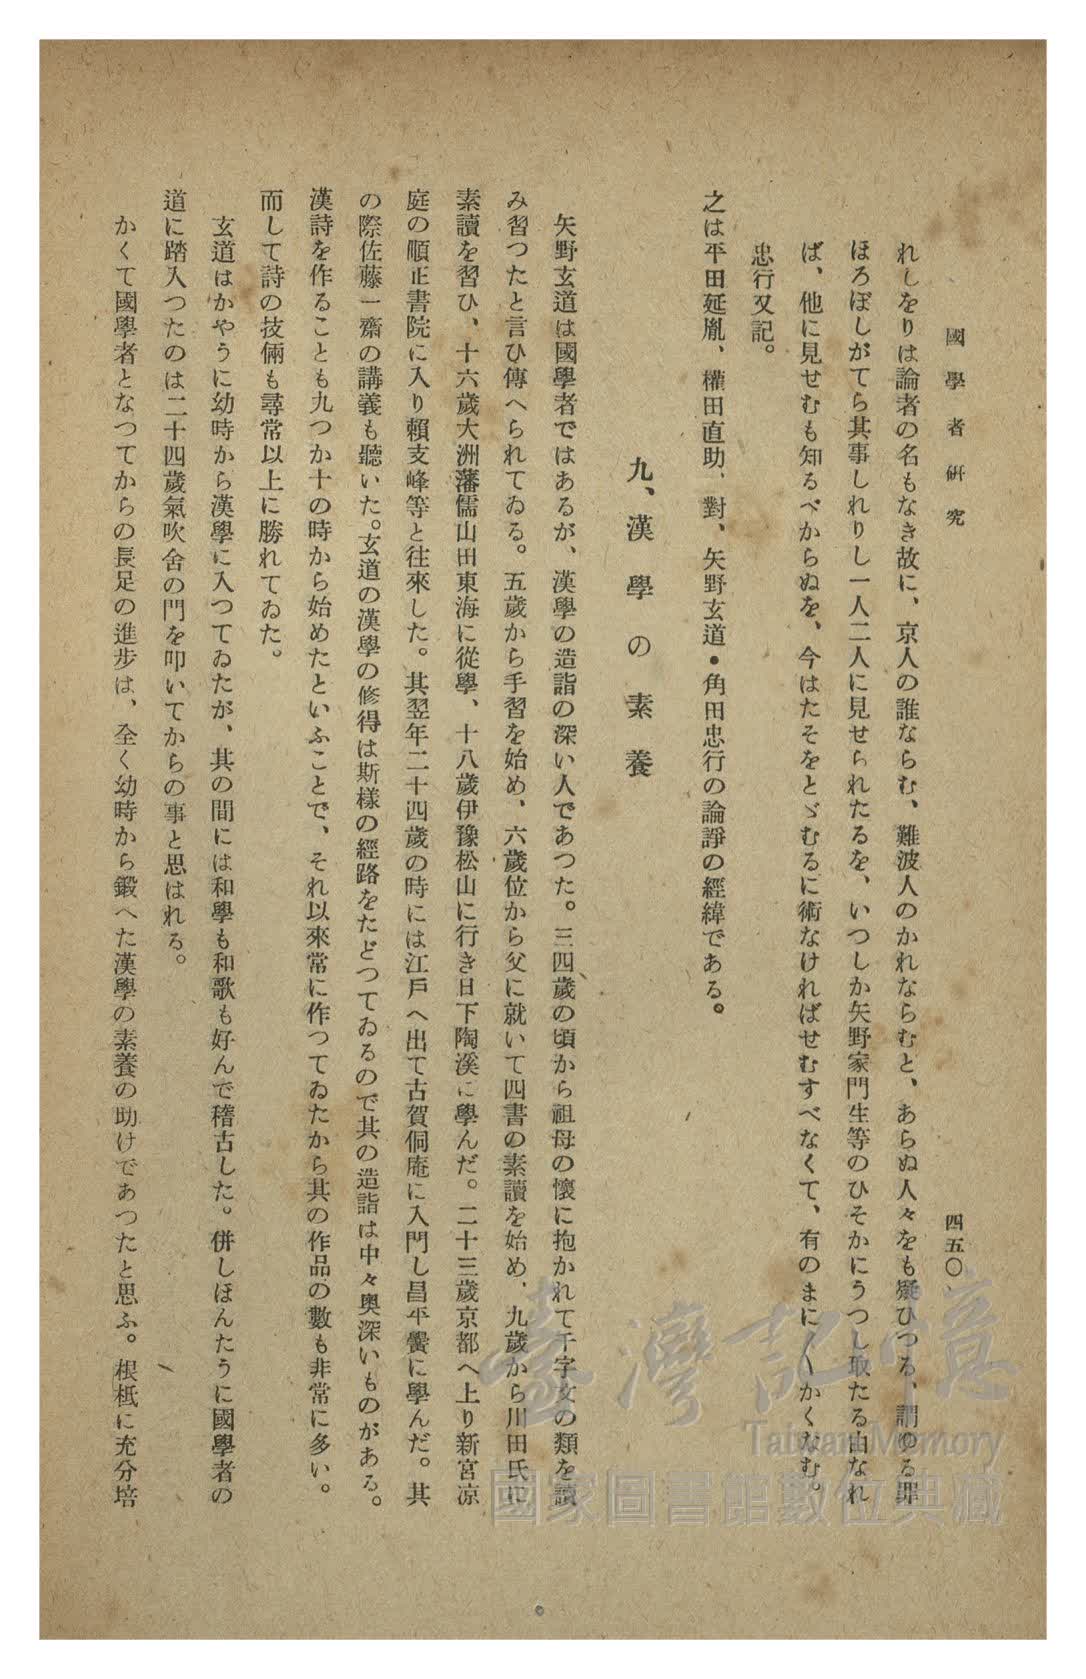 國學者研究
四五〇
れしをりは論者の名もなき故に、京人の誰ならむ、難波人のかれならむと、あらぬ人々をも疑ひつる、謂ゆる罪
ほろぼしがてら其事しれりし一人二人に見せられたるを、いつしか矢野家門生等のひそかにうつし取たる由なれ
ば、他に見せむも知るべからぬを、今はたそをとゞむるに術なければせむすべなくて、有のまに〱かくなむ。
忠行又記。
之は平田延胤、權田直助、對、矢野玄道・角田忠行の論諍の經緯である。
九、漢學の素養
矢野玄道は國學者ではあるが、漢學の造詣の深い人であつた。三四歲の頃から祖母の懷に抱かれて千字文の類を讀
み習つたと言ひ傳へられてゐる。五歲から手習を始め、六歲位から父に就いて四書の素讀を始め、九歲から川田氏に
素讀を習ひ、十六歲大洲藩儒山田東海に從學、十八歲伊豫松山に行き日下陶溪に學んだ。二十三歲京都へ上り新宮凉
庭の順正書院に入り賴支峰等と往來した。其翌年二十四歲の時には江戶へ出て古賀侗庵に入門し昌平黌に學んだ。其
の際佐藤一齋の講義も聽いた。玄道の漢學の修得は斯樣の經路をたどつてゐるので其の造詣は中々奧深いものがある。
漢詩を作ることも九つか十の時から始めたといふことで、それ以來常に作つてゐたから其の作品の數も非常に多い。
而して詩の技倆も尋常以上に勝れてゐた。
玄道はかやうに幼時から漢學に入つてゐたが、其の間には和學も和歌も好んで稽古した。併しほんたうに國學者の
道に踏入つたのは二十四歲氣吹舍の門を叩いてからの事と思はれる。
かくて國學者となつてからの長足の進步は、全く幼時から鍛へた漢學の素養の助けであつたと思ふ。根柢に充分培
臺灣記憶
Taiwan Memory
國家圖書館數位典藏